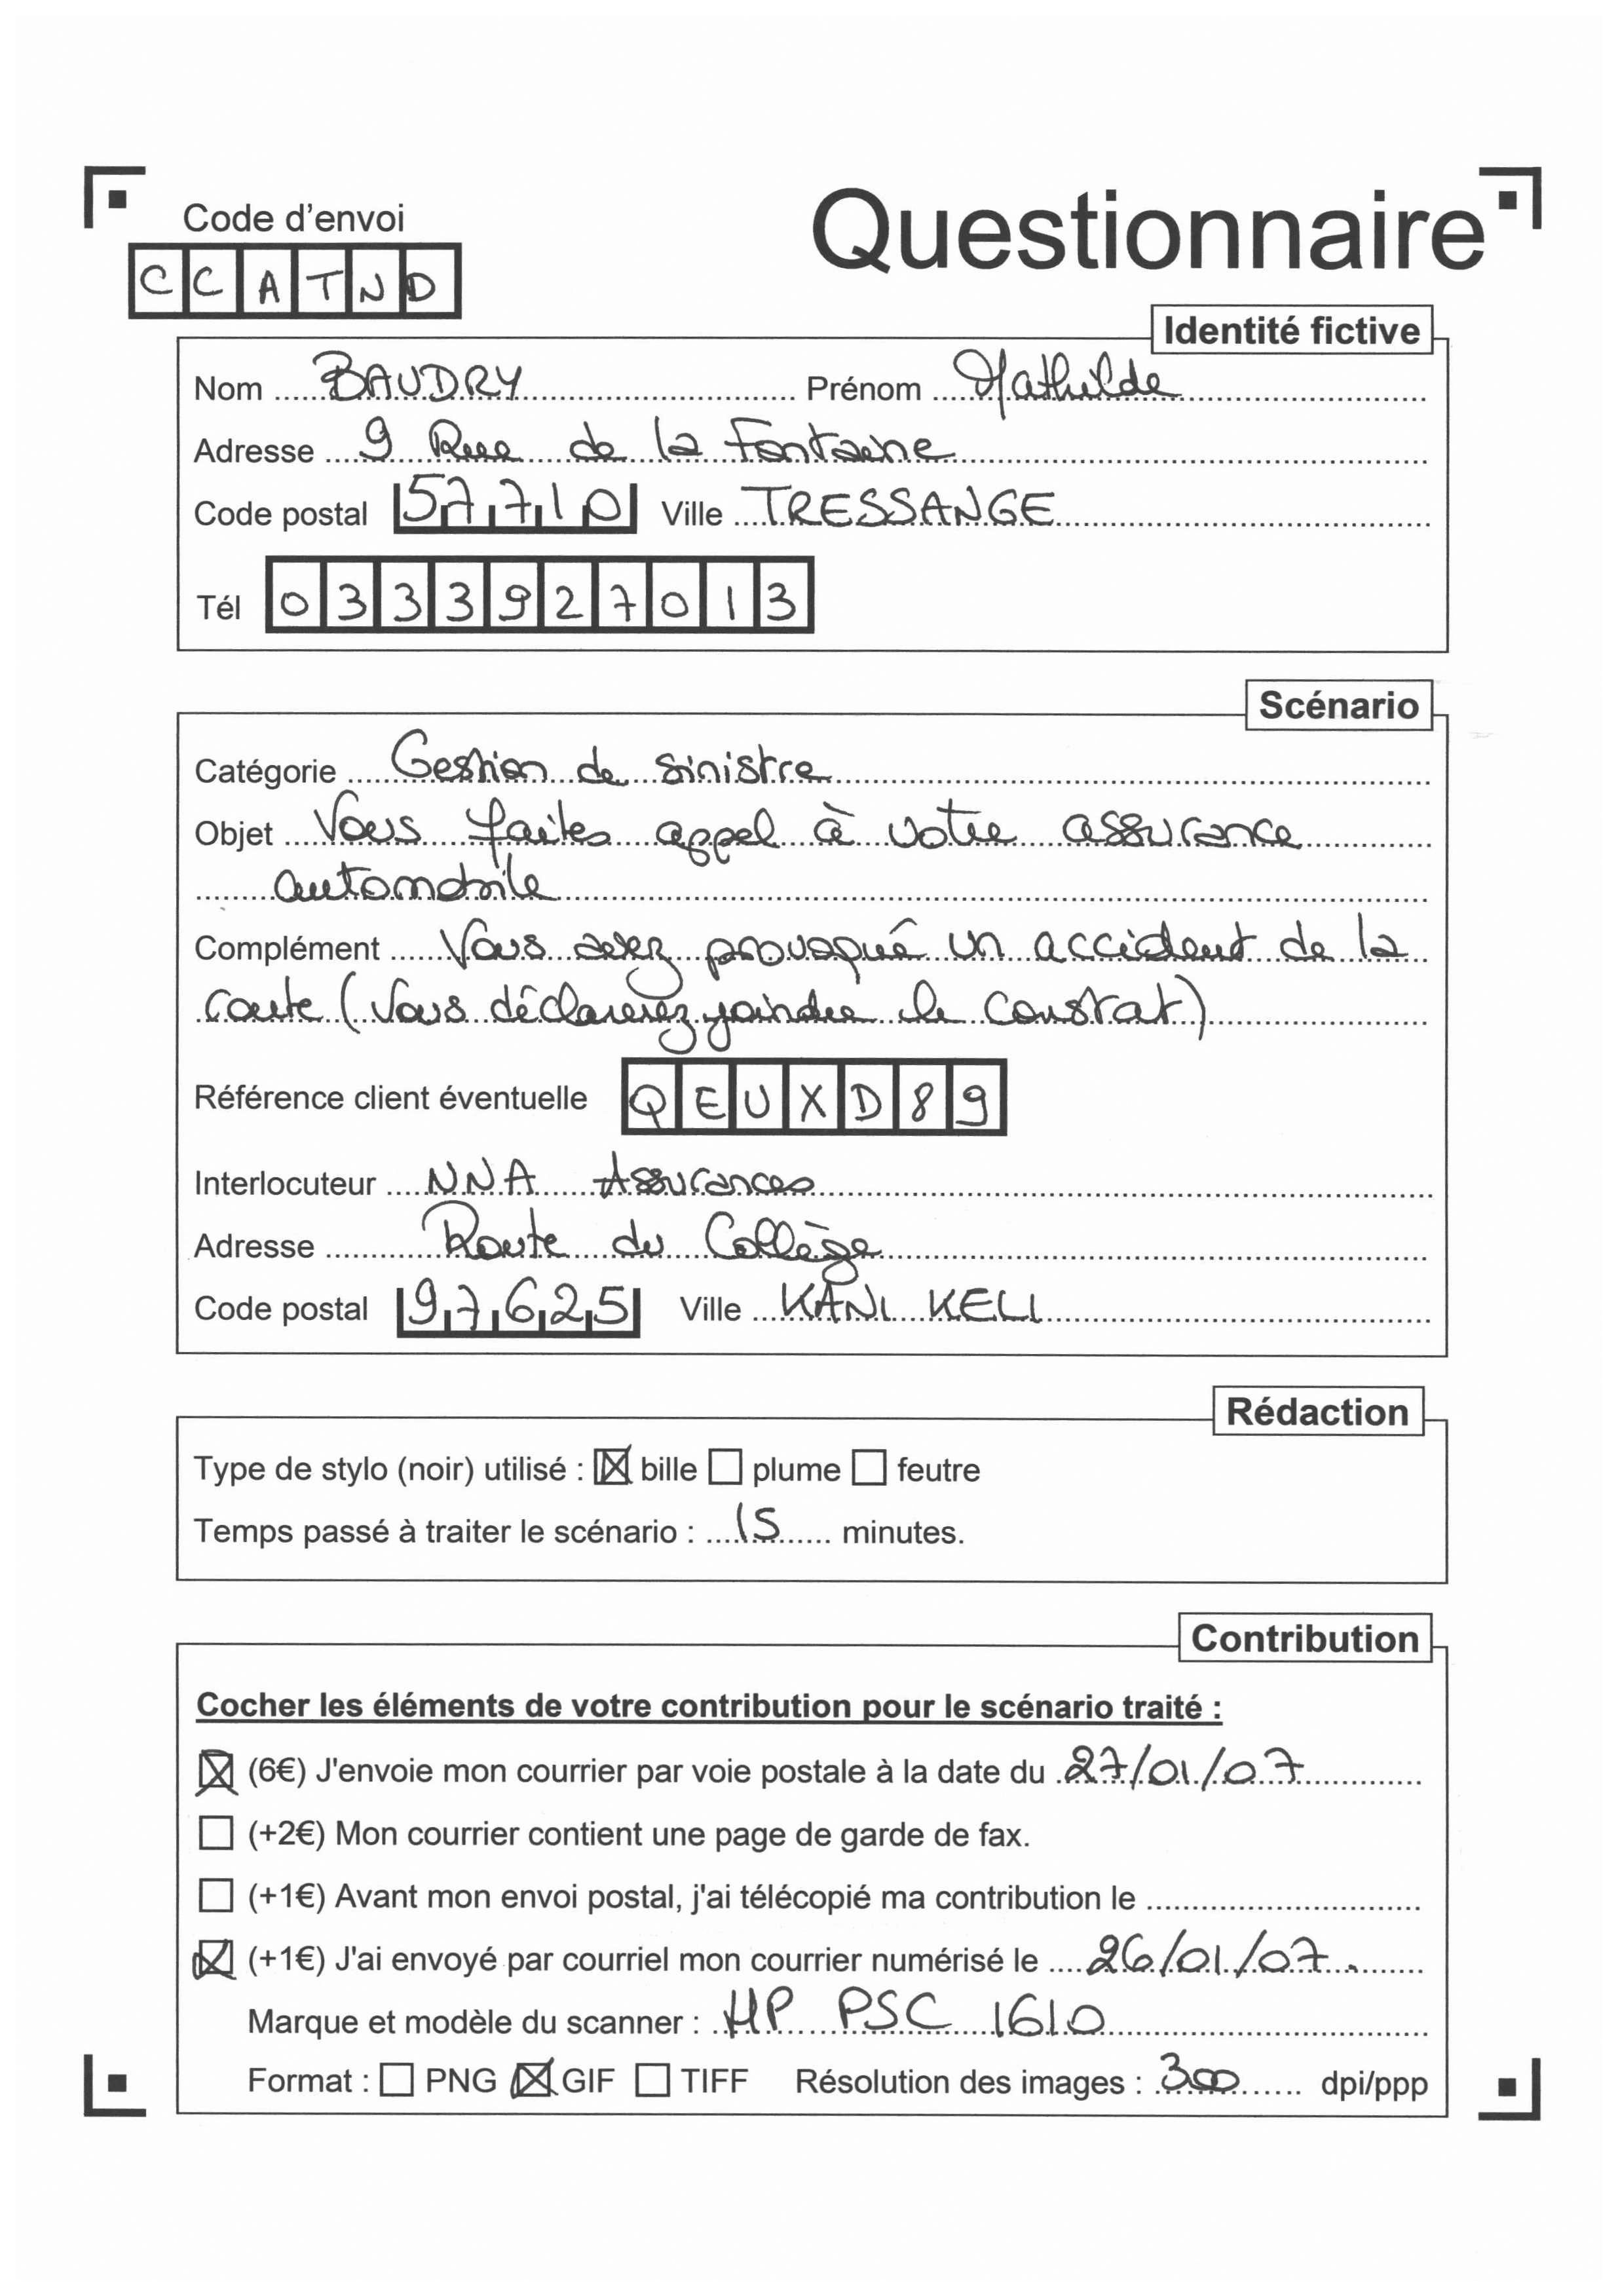 Code d'envoi
Questionnaire
CCATND
Identité fictive
Nom BAUDRY Prénom Mathilde
Adresse 9 Rue de la Fontaine
Code postal 57710 Ville TRESSANGE
Tél 0333927013
Scénario
Catégorie Gestion de sinistre
Objet Vous faites appel à votre assurance
automobile
Complément Vous avez provoqué un accident de la
route (Vous déclarerez joindre le constat)
Référence client éventuelle QEUXD89
Interlocuteur NNA Assurances
Adresse Route du Collège
Code postal 97625 Ville KANI KELI
Rédaction
Type de stylo (noir) utilisé : ☒ bille ☐ plume ☐ feutre
Temps passé à traiter le scénario : 15 minutes.
Contribution
Cocher les éléments de votre contribution pour le scénario traité :
☒ (6€) J'envoie mon courrier par voie postale à la date du 27/01/07
☐ (+2€) Mon courrier contient une page de garde de fax.
☐ (+1€) Avant mon envoi postal, j'ai télécopié ma contribution le
☒ (+1€) J'ai envoyé par courriel mon courrier numérisé le 26/01/07.
Marque et modèle du scanner : HP PSC 1610
Format : ☐ PNG ☒ GIF ☐ TIFF Résolution des images : 300 dpi/ppp